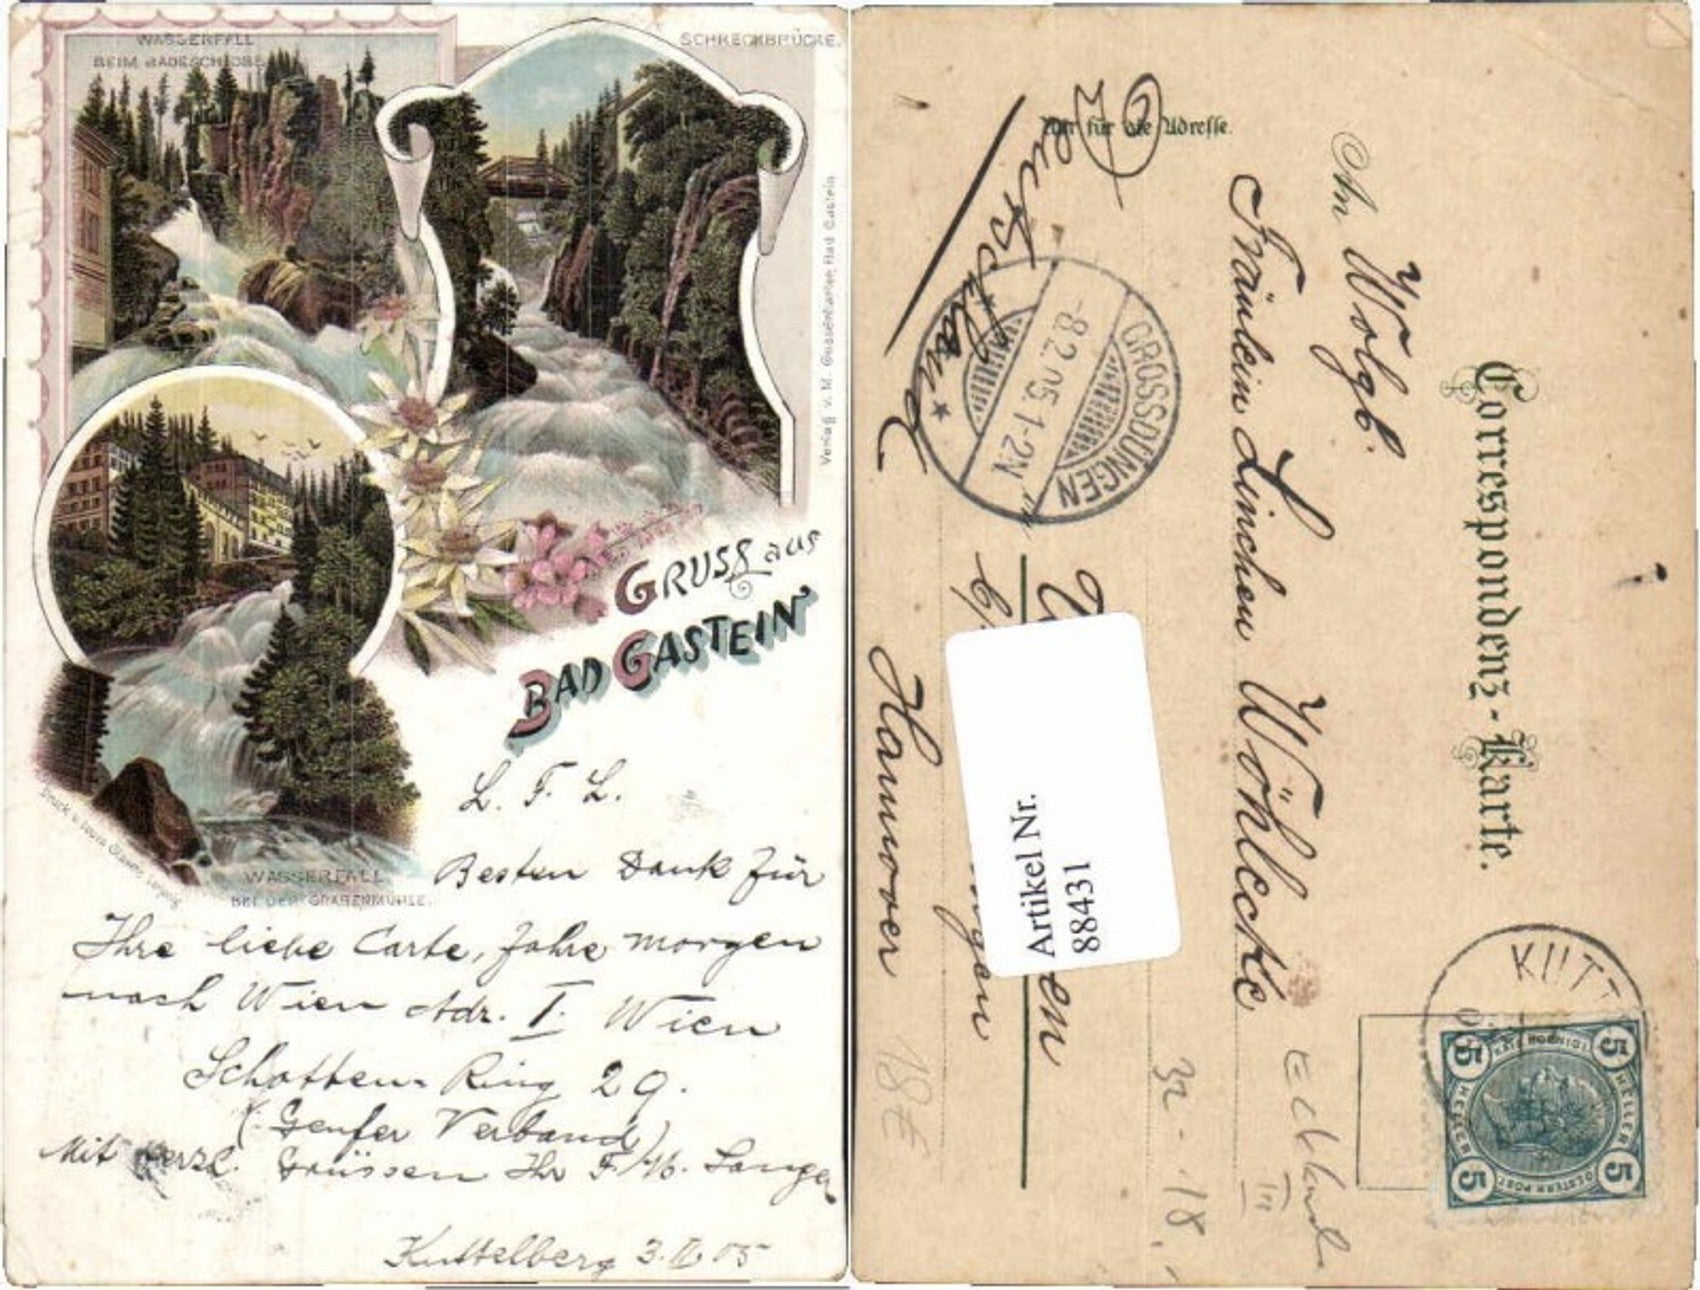 WASSERFALL
BEIM BADESCHLOSS
SCHRECKBRÜCKE.
Verlag v. M. Gussenbauer, Bad Gastein
GRUSS aus
BAD GASTEIN
Druck v. Louis Glaser, Leipzig
WASSERFALL
BEI DER GRABENMÜHLE.
L. F. L.
Besten Dank für
Ihre liebe Carte, fahre morgen
nach Wien Adr. I. Wien
Schotten-Ring 29.
(: Genfer Verband)
Mit herzl. Grüssen Ihr F. W. Lange
Kuttelberg 3. II. 05
Correspondenz-Karte.
Nur für die Adresse.
An Wolgb.
Fräulein Linchen Wöhlecke
en
Hannover
Deutschland
GROSSDÜNGEN
-8.2.05.1-2N
KUTT
5 5 5 5
HELLER HELLER
OESTERR. POST
Artikel Nr.
88431
32.-18.
18E
III